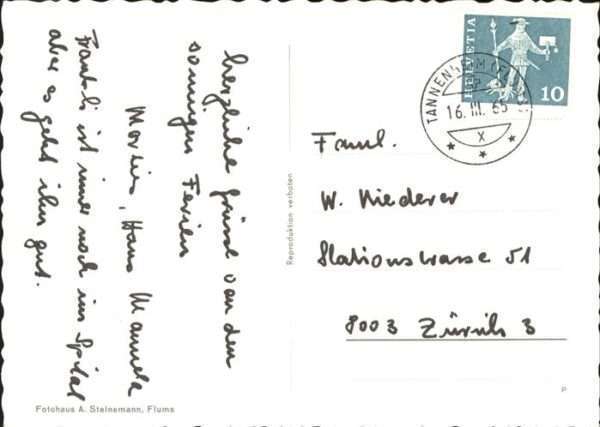 herzliche Grüsse von den
sonnigen Ferien
Hans Manuela
Fraueli ist immer noch im Spital
aber es geht ihm gut.
Fotohaus A. Steinemann, Flums
Reproduktion verboten
HELVETIA
10
TANNEN
16. III. 65
X
Faml.
W. Niederer
Stationsstrasse 51
8003 Zürich 3